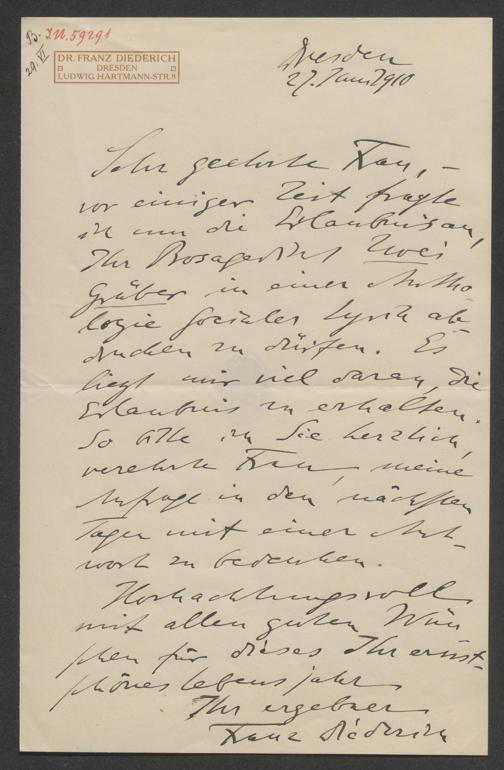 B. I.N. 59291
29. VI
DR. FRANZ DIEDERICH
DRESDEN
LUDWIG HARTMANN-STR. 8
Dresden
27. Juni 1910
Sehr geehrte Frau, –
vor einiger Zeit fragte
ich um die Erlaubnis an,
Ihr Prosagedicht Zwei
Gräber in einer Antho-
logie socialer Lyrik ab-
drucken zu dürfen. Es
liegt mir viel daran, die
Erlaubnis zu erhalten.
So bitte ich Sie herzlich,
verehrte Frau, meine
Anfrage in den nächsten
Tagen mit einer Ant-
wort zu bedenken.
Hochachtungsvoll
mit allen guten Wün
schen für dieses Ihr ernst-
schönes Lebensjahr
Ihr ergebner
Franz Diederich